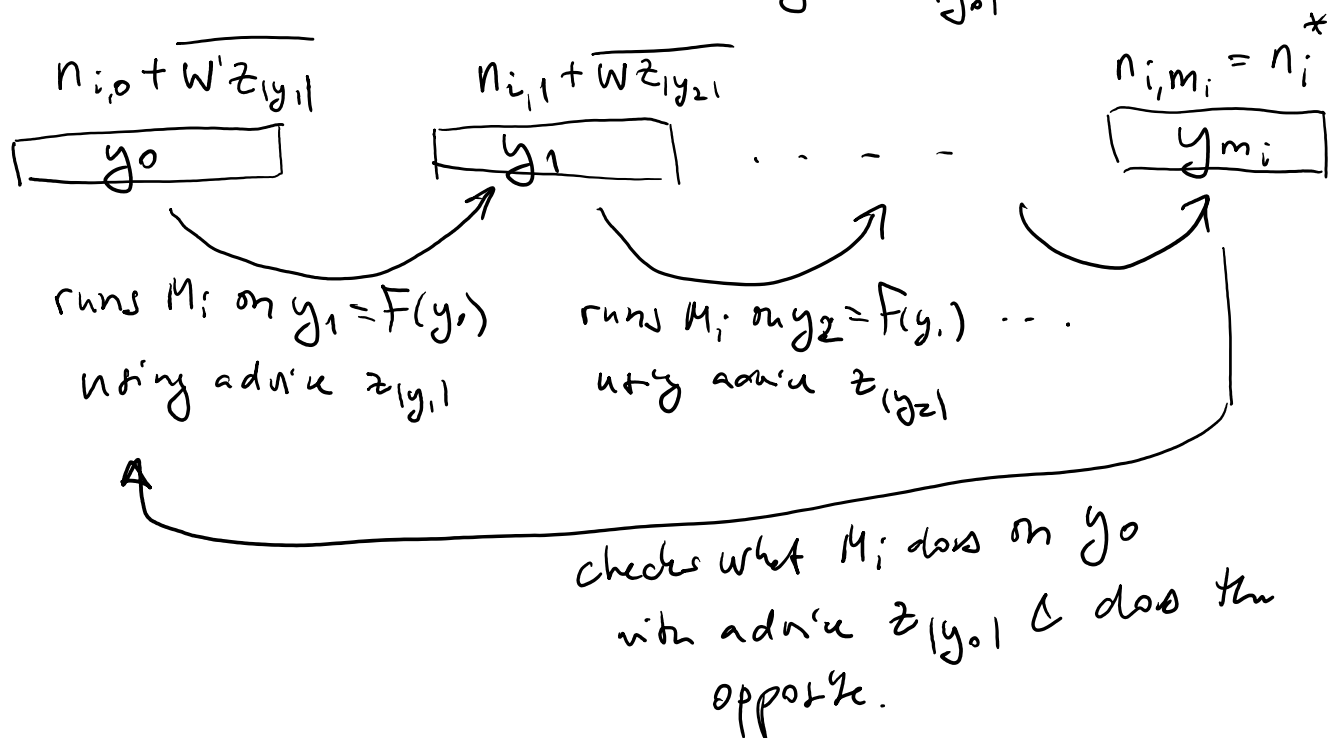 y₀|
n_{i,0} + \overline{w'z_{|y_1|}}
n_{i,1} + \overline{wz_{|y_2|}}
n_{i,m_i} = n_i^*
y₀
y₁
. . - -
y_{m_i}
runs M_i on y₁ = F(y₀)
using advice z_{|y_1|}
runs M_i on y₂ = F(y₁) ....
using advice z_{|y_2|}
checks what M_i does on y₀
with advice z_{|y_0|} & does the
opposite.